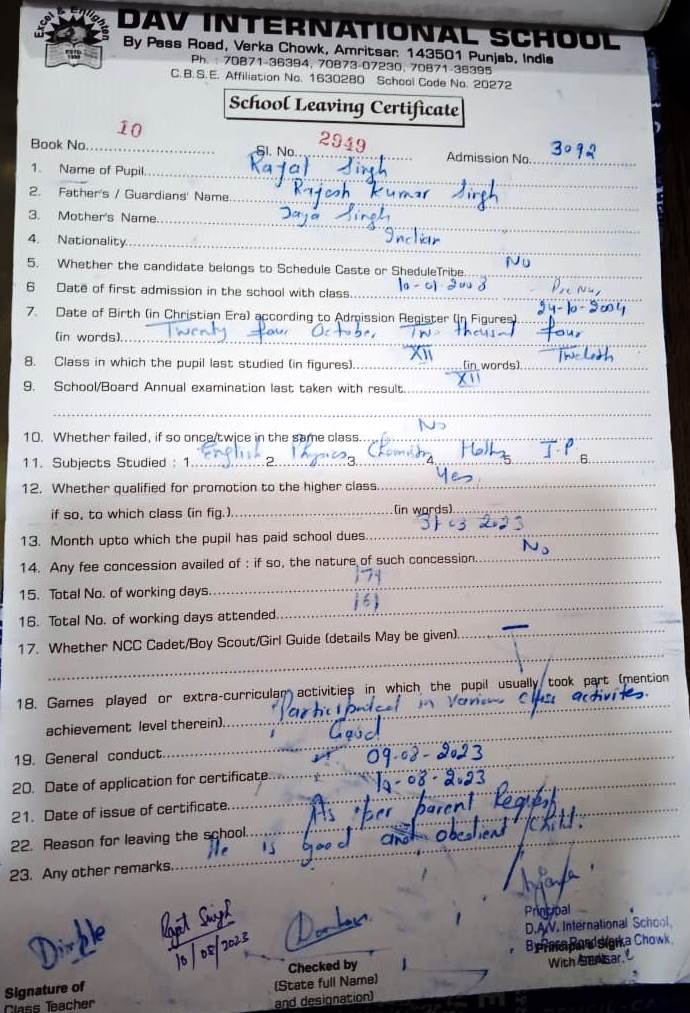 Excel & Enlighten
ESTD.
DAV INTERNATIONAL SCHOOL
By Pass Road, Verka Chowk, Amritsar. 143501 Punjab, India
Ph. : 70871-36394, 70873-07230, 70871-36395
C.B.S.E. Affiliation No. 1630280 School Code No. 20272
School Leaving Certificate
Book No. 10 Sl. No. 2949 Admission No. 3092
1. Name of Pupil Rajat Singh
2. Father's / Guardians' Name Rajesh Kumar Singh
3. Mother's Name Jaya Singh
4. Nationality Indian
5. Whether the candidate belongs to Schedule Caste or SheduleTribe No
6 Date of first admission in the school with class 10-01-2008 Pre Nur,
7. Date of Birth (in Christian Era) according to Admission Register (in Figures) 24-10-2004
(in words) Twenty four October, Two thousand four
8. Class in which the pupil last studied (in figures) XII (in words) Twelveth
9. School/Board Annual examination last taken with result XII
10. Whether failed, if so once/twice in the same class No
11. Subjects Studied : 1. English 2. Physics 3. Chemistry 4. Maths 5. I.P. 6.
12. Whether qualified for promotion to the higher class Yes
if so, to which class (in fig.) (in words)
13. Month upto which the pupil has paid school dues 31-03 2023
14. Any fee concession availed of : if so, the nature of such concession No
15. Total No. of working days 174
16. Total No. of working days attended 161
17. Whether NCC Cadet/Boy Scout/Girl Guide (details May be given) –
18. Games played or extra-curricular activities in which the pupil usually took part (mention
achievement level therein) Participated in various class activites.
19. General conduct Good
20. Date of application for certificate 09-08-2023
21. Date of issue of certificate 10-08-2023
22. Reason for leaving the school As per parent Request
23. Any other remarks He is good and obedient child.
Dimple
Rajat Singh
10/08/2023
Principal
D.A.V. International School,
By Pass Road Verka Chowk,
Amritsar.
Principal's Sign.
With Seal
Signature of
Class Teacher
Checked by
(State full Name)
and designation)